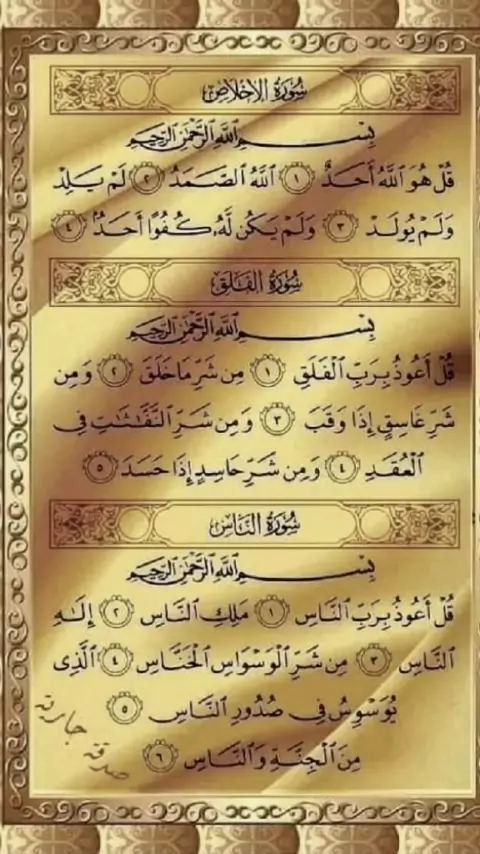 سُورَةُ الإِخْلَاصِ
بِسْمِ اللَّهِ الرَّحْمَٰنِ الرَّحِيمِ
قُلْ هُوَ ٱللَّهُ أَحَدٌ ١ ٱللَّهُ ٱلصَّمَدُ ٢ لَمْ يَلِدْ
وَلَمْ يُولَدْ ٣ وَلَمْ يَكُن لَّهُۥ كُفُوًا أَحَدٌۢ ٤
سُورَةُ الفَلَقِ
بِسْمِ اللَّهِ الرَّحْمَٰنِ الرَّحِيمِ
قُلْ أَعُوذُ بِرَبِّ ٱلْفَلَقِ ١ مِن شَرِّ مَا خَلَقَ ٢ وَمِن
شَرِّ غَاسِقٍ إِذَا وَقَبَ ٣ وَمِن شَرِّ ٱلنَّفَّٰثَٰتِ فِى
ٱلْعُقَدِ ٤ وَمِن شَرِّ حَاسِدٍ إِذَا حَسَدَ ٥
سُورَةُ النَّاسِ
بِسْمِ اللَّهِ الرَّحْمَٰنِ الرَّحِيمِ
قُلْ أَعُوذُ بِرَبِّ ٱلنَّاسِ ١ مَلِكِ ٱلنَّاسِ ٢ إِلَٰهِ
ٱلنَّاسِ ٣ مِن شَرِّ ٱلْوَسْوَاسِ ٱلْخَنَّاسِ ٤ ٱلَّذِى
يُوَسْوِسُ فِى صُدُورِ ٱلنَّاسِ ٥
مِنَ ٱلْجِنَّةِ وَٱلنَّاسِ ٦
صدقة جارية